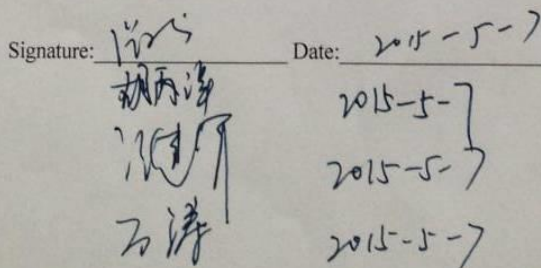 Signature: Date: 2015-5-7
胡丙泽 2015-5-7
2015-5-7
石涛 2015-5-7